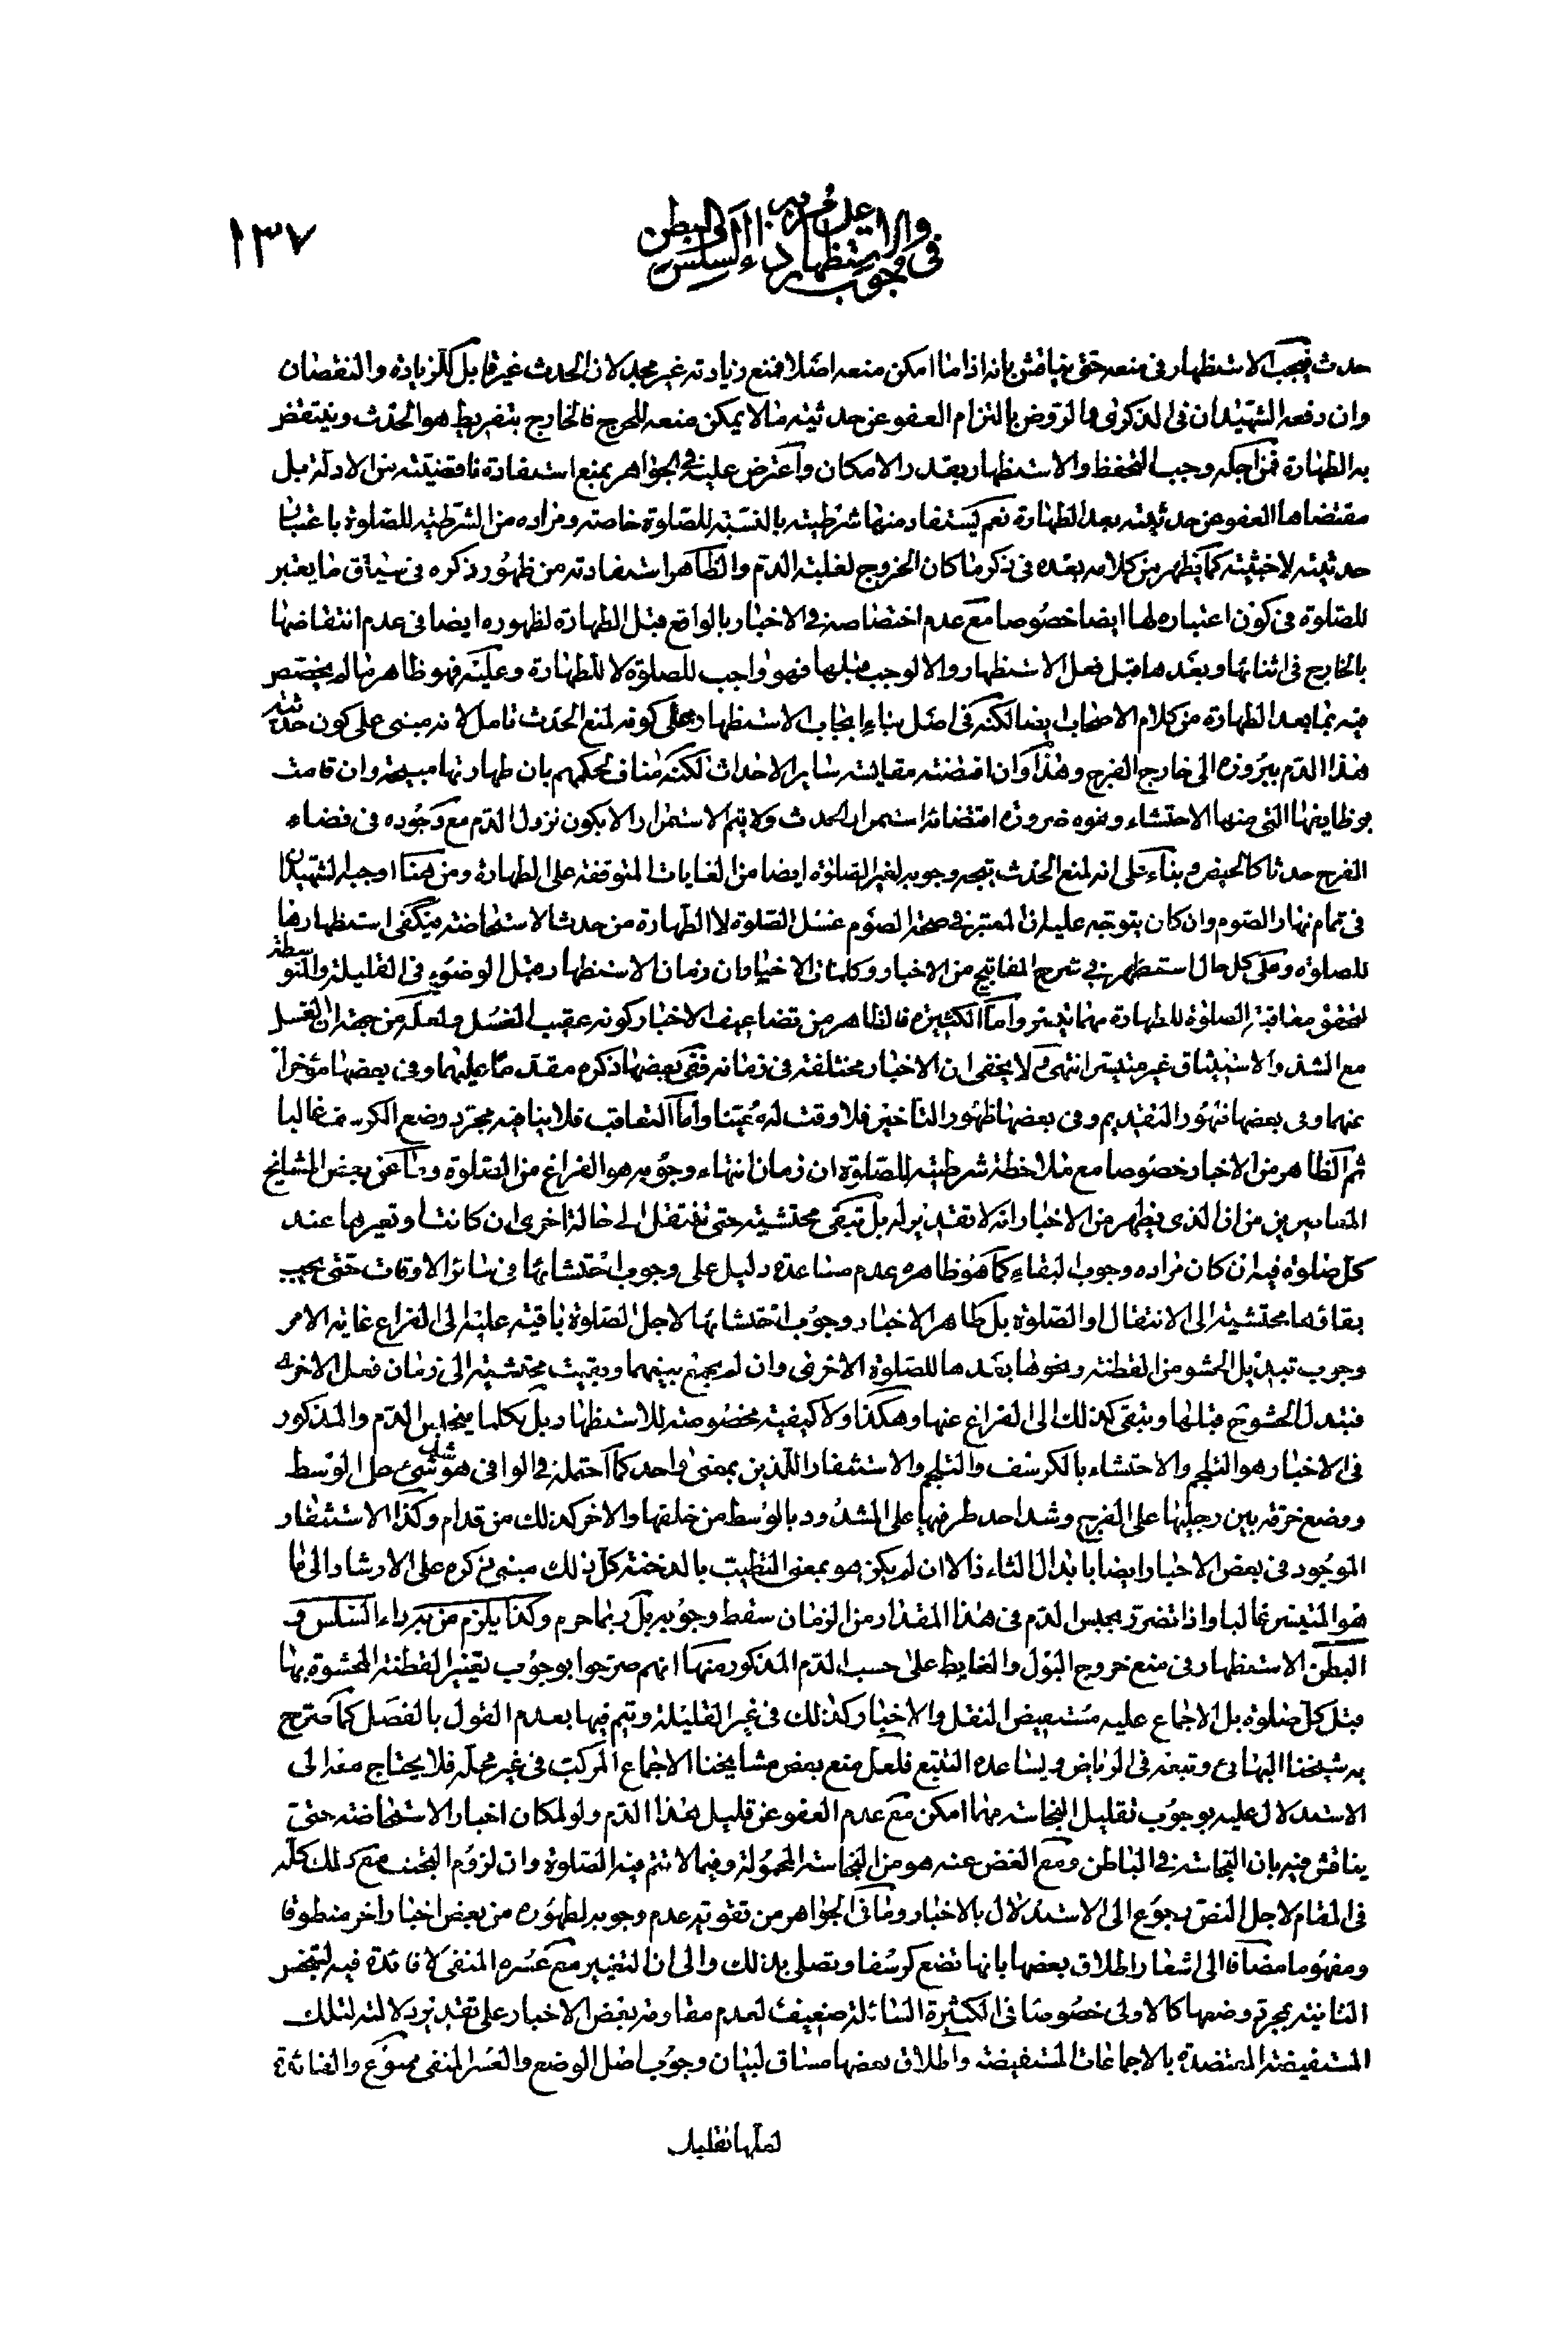 ١٣٧
في وجوب الاستظهار على من به داء السلس والبطن
حدث فيجب الاستظهار في منعه حتى يناقش بانه اذا ما امكن منعه اصلا فمنع زيادته غير مجد لان الحدث غير قابل للزيادة والنقصان
وان دفعه الشهيدان في الذكرى والروض بالتزام العفو عن حدثيته ما لا يمكن منعه للحرج فالخارج بتفريط هو الحدث وينتقض
به الطهارة فمن اجله وجب التحفظ والاستظهار بقدر الامكان واعترض عليه في الجواهر بمنع استفادة ناقضيته من الادلة بل
مقتضاها العفو عن حدثيته بعد الطهارة نعم يستفاد منها شرطيته بالنسبة للصلوة خاصة ومراده من الشرطية للصلوة باعتبار
حدثيته لا خبثيته كما يظهر من كلامه بعده في ذكر ما كان الخروج لغلبة الدم والظاهر استفادته من ظهور ذكره في سياق ما يعتبر
للصلوة في كون اعتباره لها ايضا خصوصا مع عدم اختصاصه في الاخبار بالواقع قبل الطهارة لظهوره ايضا في عدم انتقاضها
بالخارج في اثنائها وبعدها قبل فعل الاستظهار والا لوجب قبلها فهو واجب للصلوة لا للطهارة وعليه فهو ظاهر ما لم يختص
فيه بما بعد الطهارة من كلام الاصحاب ايضا لكنه في اصل بناء ايجاب الاستظهار على كونه لمنع الحدث تامل لانه مبنى على كون حدثية
هذا الدم ببروزه الى خارج الفرج وهذا وان اقتضته مقايسته سائر الاحداث لكنه مناف لحكمهم بان طهارتها مبيحة وان قامت
بوظايفها التي منها الاحتشاء ونحوه ضرورة اقتضائه استمرار الحدث ولا يتم الاستمرار الا بكون نزول الدم مع وجوده في فضاء
الفرج حدثا كالحيض وبناء على انه لمنع الحدث يتجه وجوبه لغير الصلوة ايضا من الغايات المتوقفة على الطهارة ومن هنا اوجبه الشهيدان
في تمام نهار الصوم وان كان يتوجه عليه ان المعتبر في صحة الصوم غسل الصلوة لا الطهارة من حدث الاستحاضة فيكفى استظهارها
للصلوة وعلى كل حال استظهر في شرح المفاتيح من الاخبار وكلمات الاخيار ان زمان الاستظهار قبل الوضوء في القليلة والمتوسطة
لتحقق معاقبة الصلوة للطهارة مهما تيسر واما الكثيرة فالظاهر من تضاعيف الاخبار كونه عقيب الغسل ولعله من جهة ان الغسل
مع الشد والاستيثاق غير متيسر انتهى ولا يخفى ان الاخبار مختلفة في زمانه ففي بعضها ذكره مقدما عليهما وفي بعضها مؤخرا
عنهما وفي بعضها ظهور التقديم وفي بعضها ظهور التاخير فلا وقت له معينا واما التعاقب فلا ينافيه مجرد وضع الكرسف غالبا
ثم الظاهر من الاخبار خصوصا مع ملاحظة شرطيته للصلوة ان زمان انتهاء وجوبه هو الفراغ من الصلوة وما عن بعض المشايخ
المعاصرين من ان الذي يظهر من الاخبار انه لا تقدير له بل تبقى محتشية حتى تنتقل الى حالة اخرى ان كانت او تغيرها عند
كل صلوة فيه ان كان مراده وجوب البقاء كما هو ظاهره عدم مساعدة دليل على وجوب احتشائها في سائر الاوقات حتى يجب
بقائها محتشية الى الانتقال او الصلوة بل ظاهر الاخبار وجوب احتشائها لاجل الصلوة باقية عليه الى الفراغ غاية الامر
وجوب تبديل الحشو من القطنة ونحوها بعدها للصلوة الاخرى وان لم يجمع بينهما وبقيت محتشية الى زمان فعل الاخرى
فتبدل الحشوح قبلها وتبقى كذلك الى الفراغ عنها وهكذا ولا كيفية مخصوصة للاستظهار بل بكلما ينحبس الدم والمذكور
في الاخبار هو التلجم والاحتشاء بالكرسف والتلجم والاستثفار اللذين بمعنى واحد كما احتمله في الوافي هو شد شئ على الوسط
ووضع خرقة بين رجليها على الفرج وشد احد طرفيها على المشدود بالوسط من خلفها والاخر كذلك من قدام وكذا الاستثفار
الموجود في بعض الاخبار ايضا بابدال الثاء ذالا ان لم يكن هو بمعنى التطيب بالدخنة كل ذلك مبنى ذكره على الارشاد الى ما
هو المتيسر غالبا واذا تضرر بحبس الدم في هذا المقدار من الزمان سقط وجوبه بل ربما حرم وكذا يلزم من به داء السلس و
البطن الاستظهار في منع خروج البول والغايط على حسب الدم المذكور منها انهم صرحوا بوجوب تغيير القطنة المحشوة بها
قبل كل صلوة بل الاجماع عليه مستفيض النقل والاخبار كذلك في غير القليلة ويتم فيها بعدم القول بالفصل كما صرح
به شيخنا البهائي وتبعه في الرياض ويساعده التتبع فلعل منع بعض مشايخنا الاجماع المركب في غير محله فلا يحتاج معه الى
الاستدلال عليه بوجوب تقليل النجاسة مهما امكن مع عدم العفو عن قليل هذا الدم ولو لمكان اخبار الاستحاضة حتى
يناقش فيه بان النجاسة في الباطن ومع الغض عنه هو من النجاسة المحمولة وفيما لا تتم فيه الصلوة وان لزوم التجنب مع ذلك كله
في المقام لاجل النص رجوع الى الاستدلال بالاخبار وما في الجواهر من تقوية عدم وجوبه لظهوره من بعض اخبار اخر منطوقا
ومفهوما مضافا الى اشعار اطلاق بعضها بانها تضع كرسفا وتصلى بذلك والى ان التغيير مع عسره المنفى لا فائدة فيه لتنجس
الثانية بمجرد وضعها كالاولى خصوصا في الكثيرة السائلة ضعيف لعدم مقاومة بعض الاخبار على تقدير دلالته لتلك
المستفيضة المعتضدة بالاجماعات المستفيضة واطلاق بعضها مساق لبيان وجوب اصل الوضع والعسر المنفى ممنوع والفائدة
لعلها تقليل